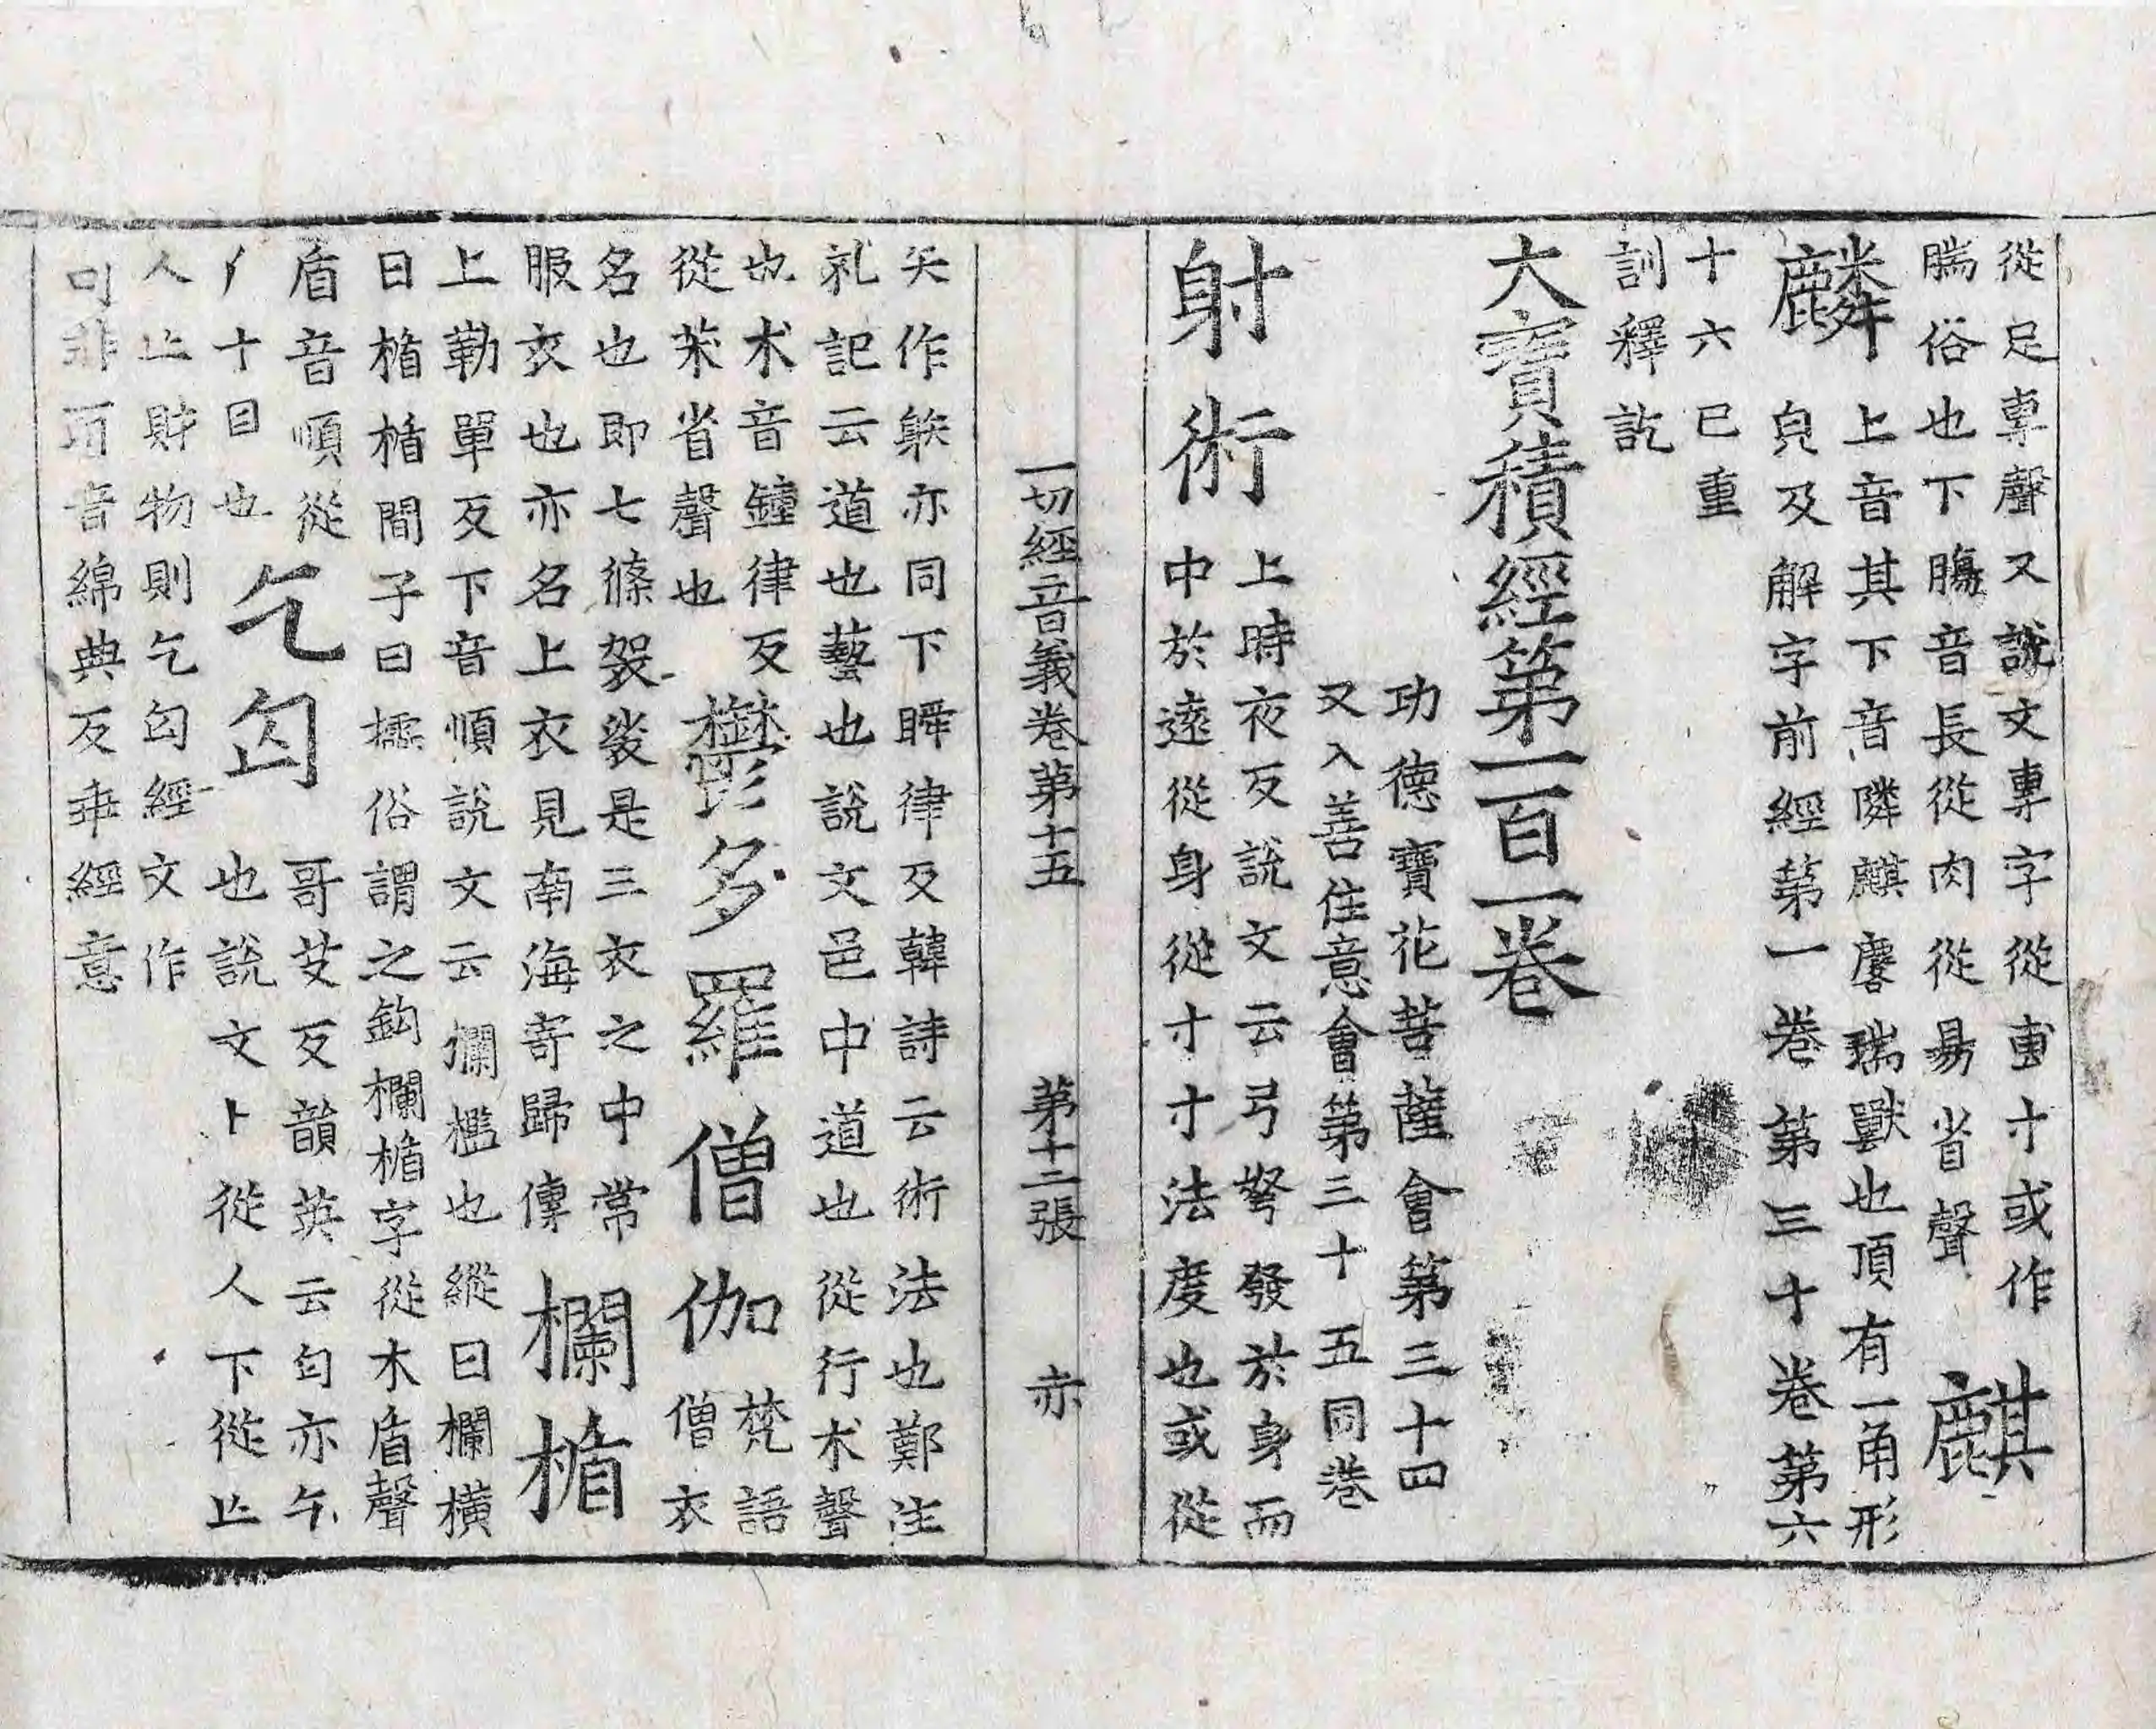 從足專聲又說文專字從叀寸或作
腨俗也下膓音長從肉從昜省聲 麒
麟 上音其下音隣麒麐瑞獸也頂有一角形
㒵及解字前經第一卷第三十卷第六
十六已重
訓釋訖
大寶積經第一百一卷
功德寶花菩薩會第三十四
又入善住意會第三十五同卷
射術 上時夜反說文云弓弩發於身而
中於遠從身從寸寸法度也或從
一切經音義卷第十五 第十二張 亦
矢作䠶亦同下瞬律反韓詩云術法也鄭注
礼記云道也藝也說文邑中道也從行术聲
也术音鐘律反
從茱省聲也 欝多羅僧伽 梵語
僧衣
名也即七條袈裟是三衣之中常
服衣也亦名上衣見南海寄歸傳 欄楯
上勒單反下音順說文云攔檻也縱曰欄橫
曰楯楯間子曰櫺俗謂之鈎欄楯字從木盾聲
盾音順從
丿十目也 乞匃 哥艾反韻英云匄亦乞
也說文卜從人下從亾
人亾財物則乞匃經文作
丐非丏音綿典反乖經意